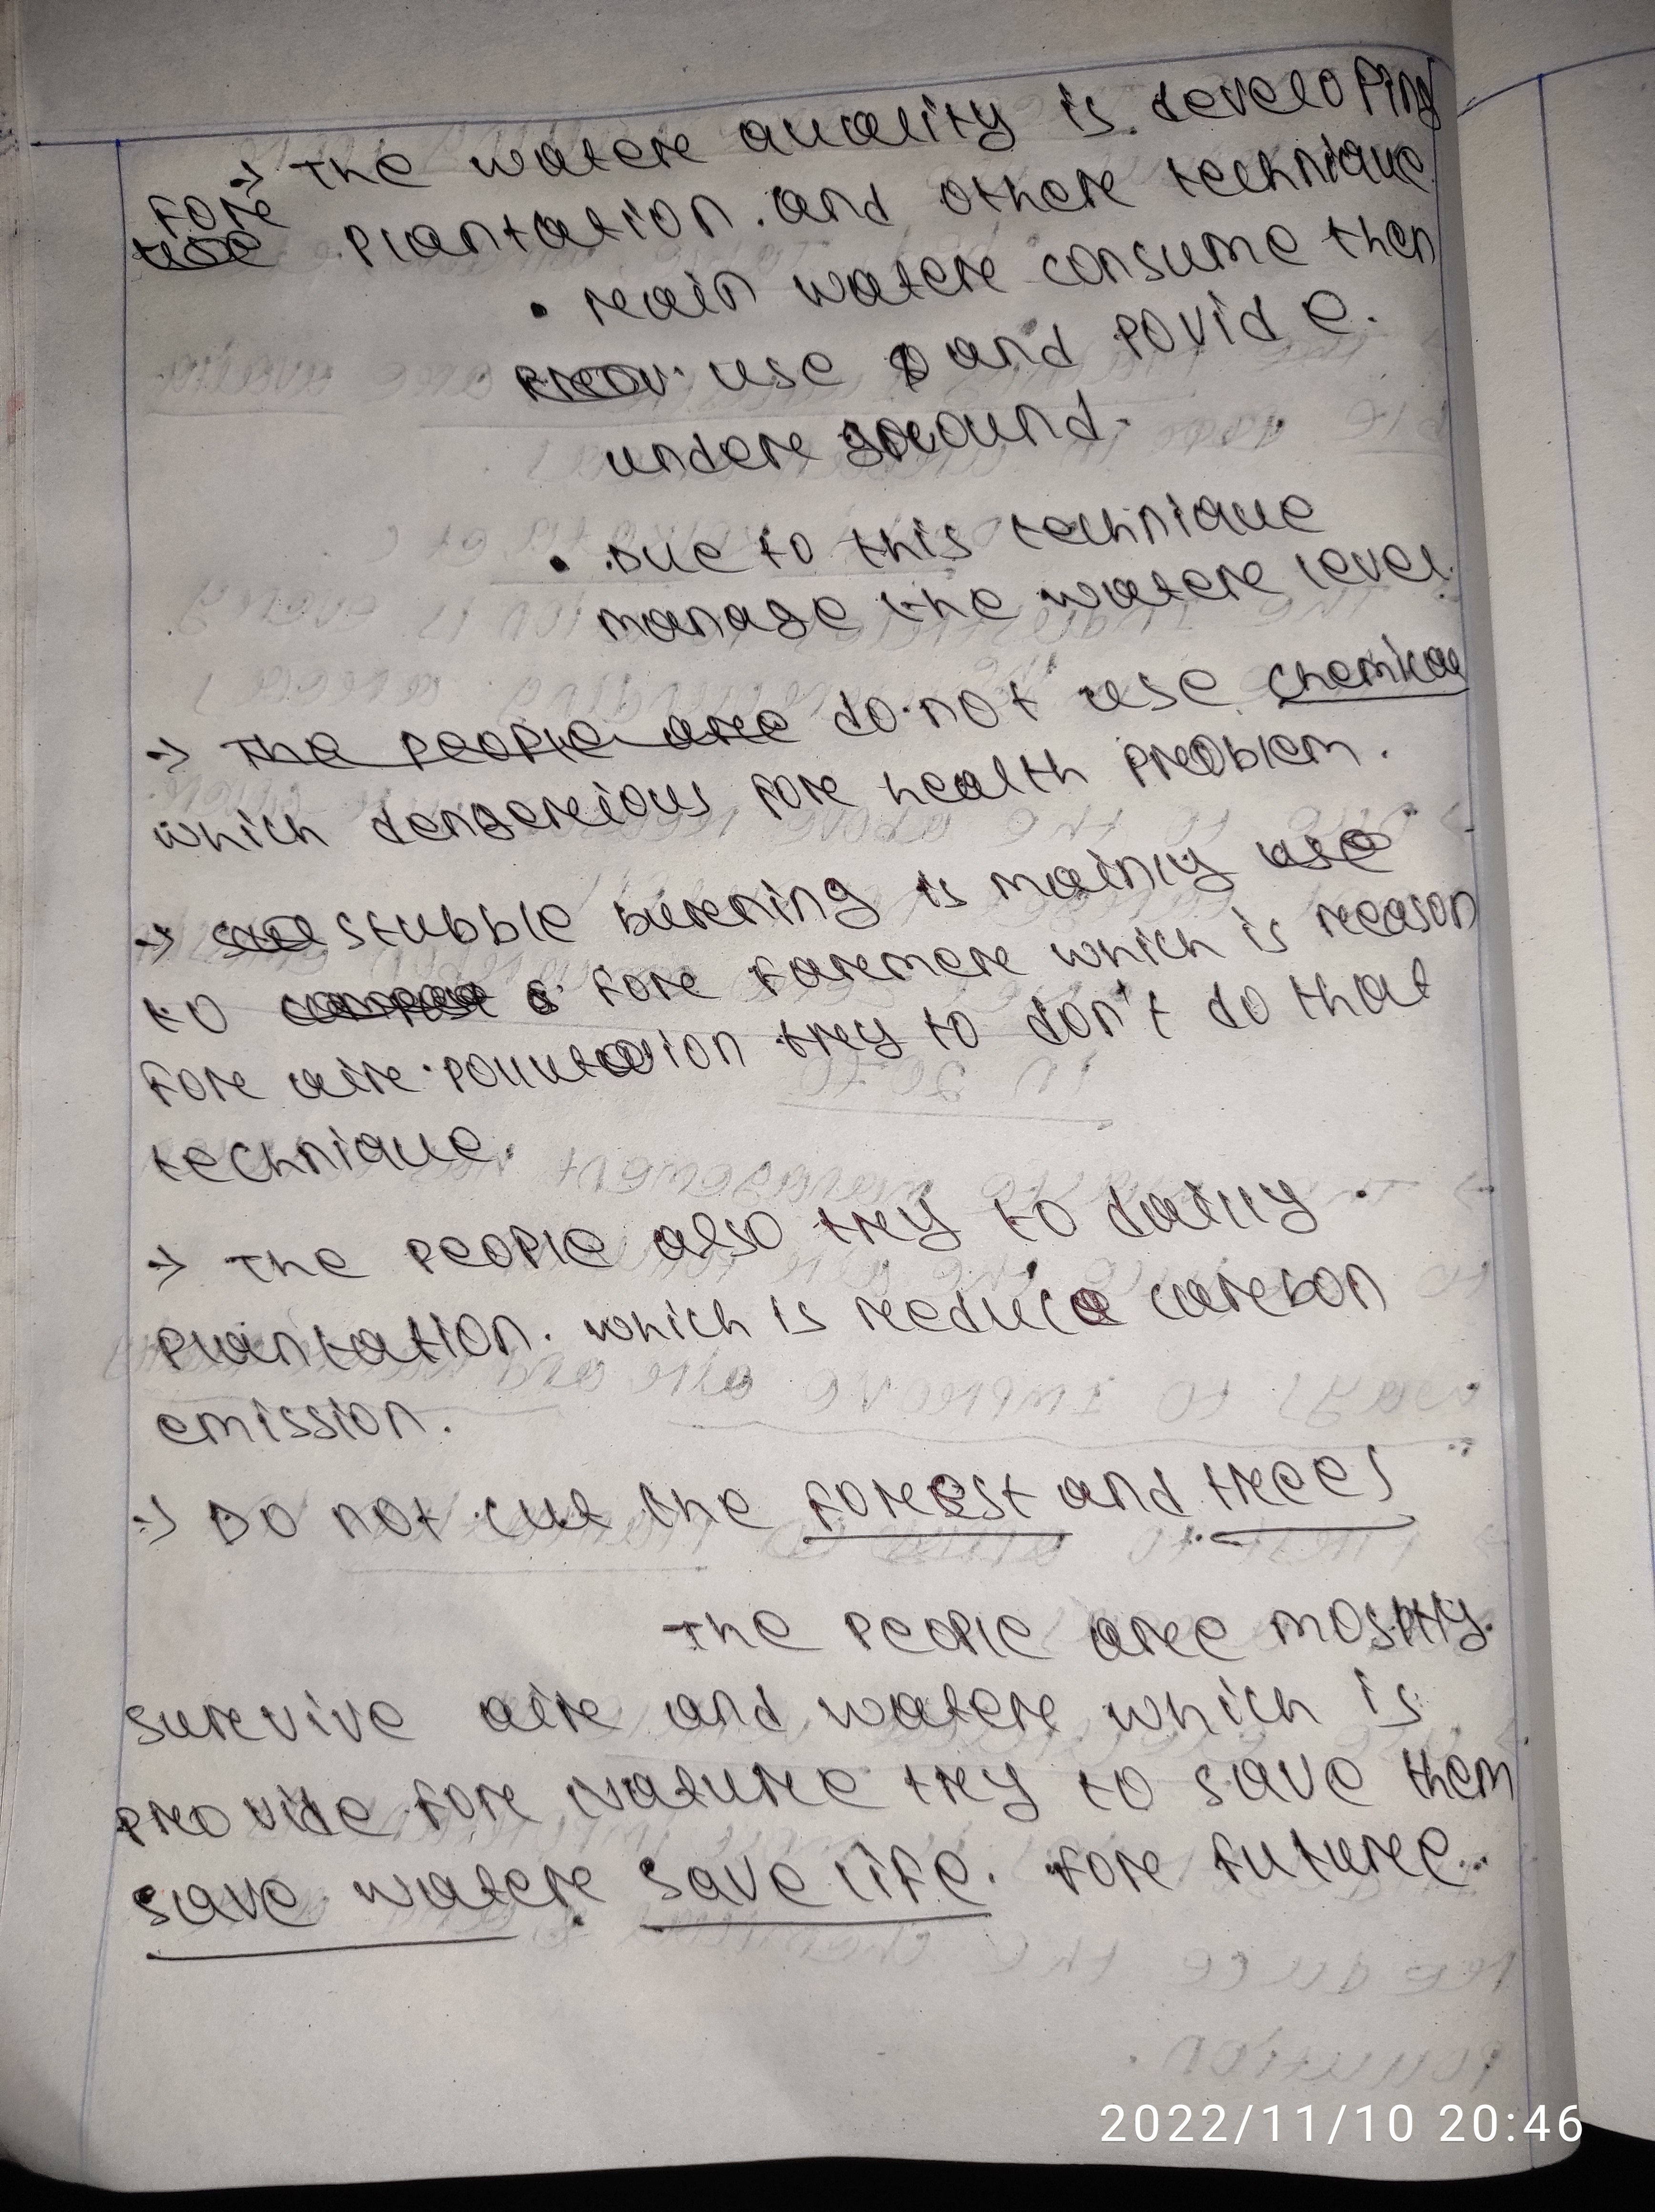 → The water quality is developing
for
use plantation. and other technique
• rain water consume then
use and povide.
under ground.
• Due to this technique
manage the water level.
→ The people are do not use chemical
which dengerious for health problem.
→ stubble burning is mainly use
to for farmer which is reason
for air pollutation try to don't do that
technique.
→ The people also try to dailly
plantation. which is reduce carbon
emission.
→ Do not cut the forest and trees
The people are mostly
survive air and water which is
provide for Nature try to save them
save water save life. for future.
2022/11/10 20:46